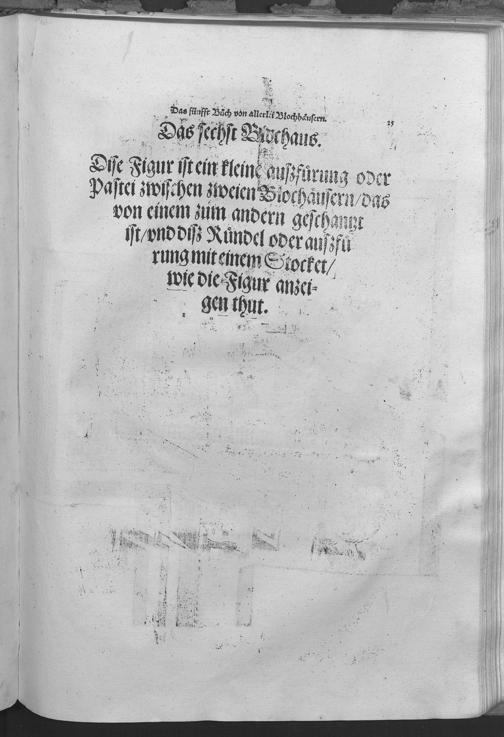 Das fünfft Bůch von allerlei Blochheüsern. 25
Das sechst Blochaus.
Dise Figur ist ein kleine auszfürung oder
Pastei zwischen zweien Blochäusern/das
von einem zum andern geschantzt
ist/vnd disz Ründel oder auszfü
rung mit einem Stocket/
wie die Figur anzei-
gen thut.